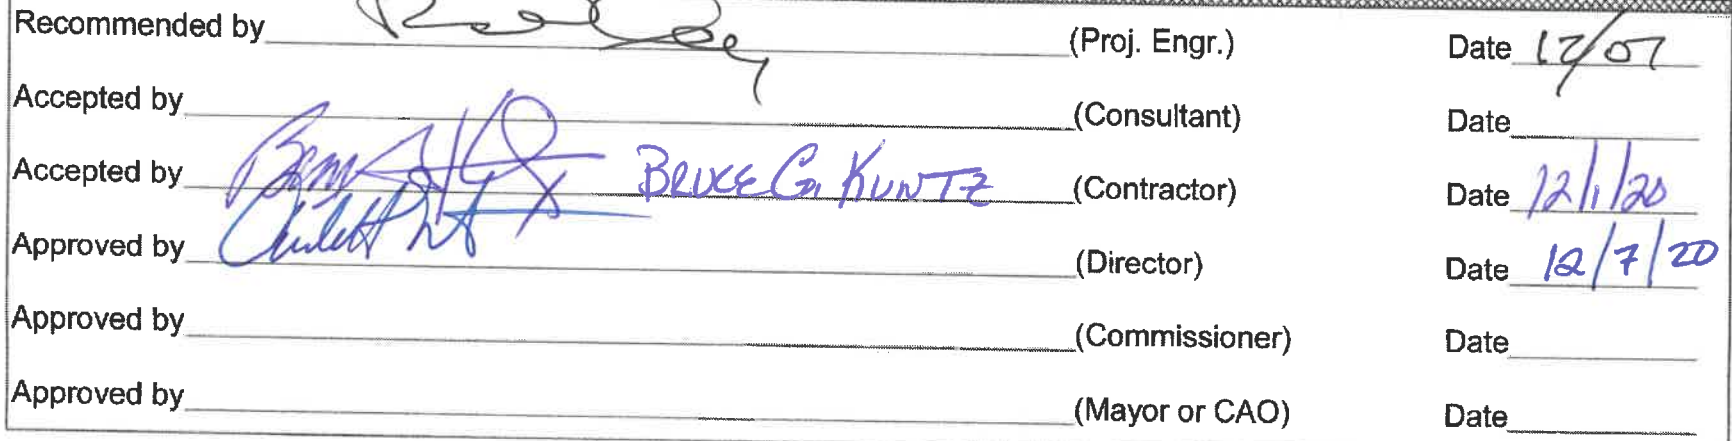 Recommended by (Proj. Engr.) Date 12/07
Accepted by (Consultant) Date
Accepted by BRUCE G. KUNTZ (Contractor) Date 12/1/20
Approved by (Director) Date 12/7/20
Approved by (Commissioner) Date
Approved by (Mayor or CAO) Date